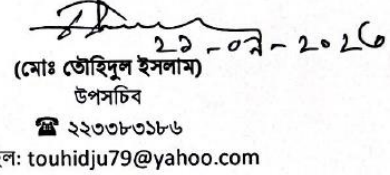 (মোঃ তৌহিদুল ইসলাম)
উপসচিব
☎ ২২৩৩৮৩১৮৬
ল: touhidju79@yahoo.com